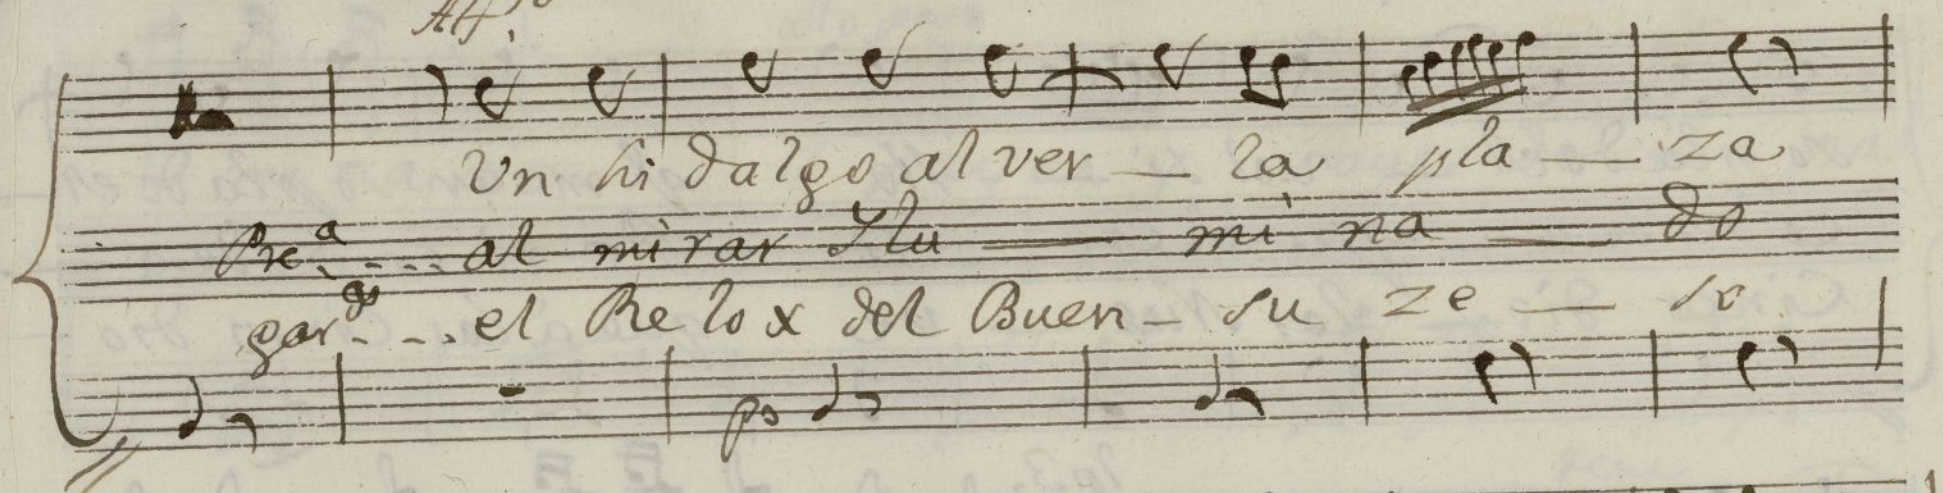 Un hi dalgo al ver — la pla — za
Pre.ª - - - - al mirar Ylu — mi na — do
gar - - - . el Relox del Buen - su ze — so
po